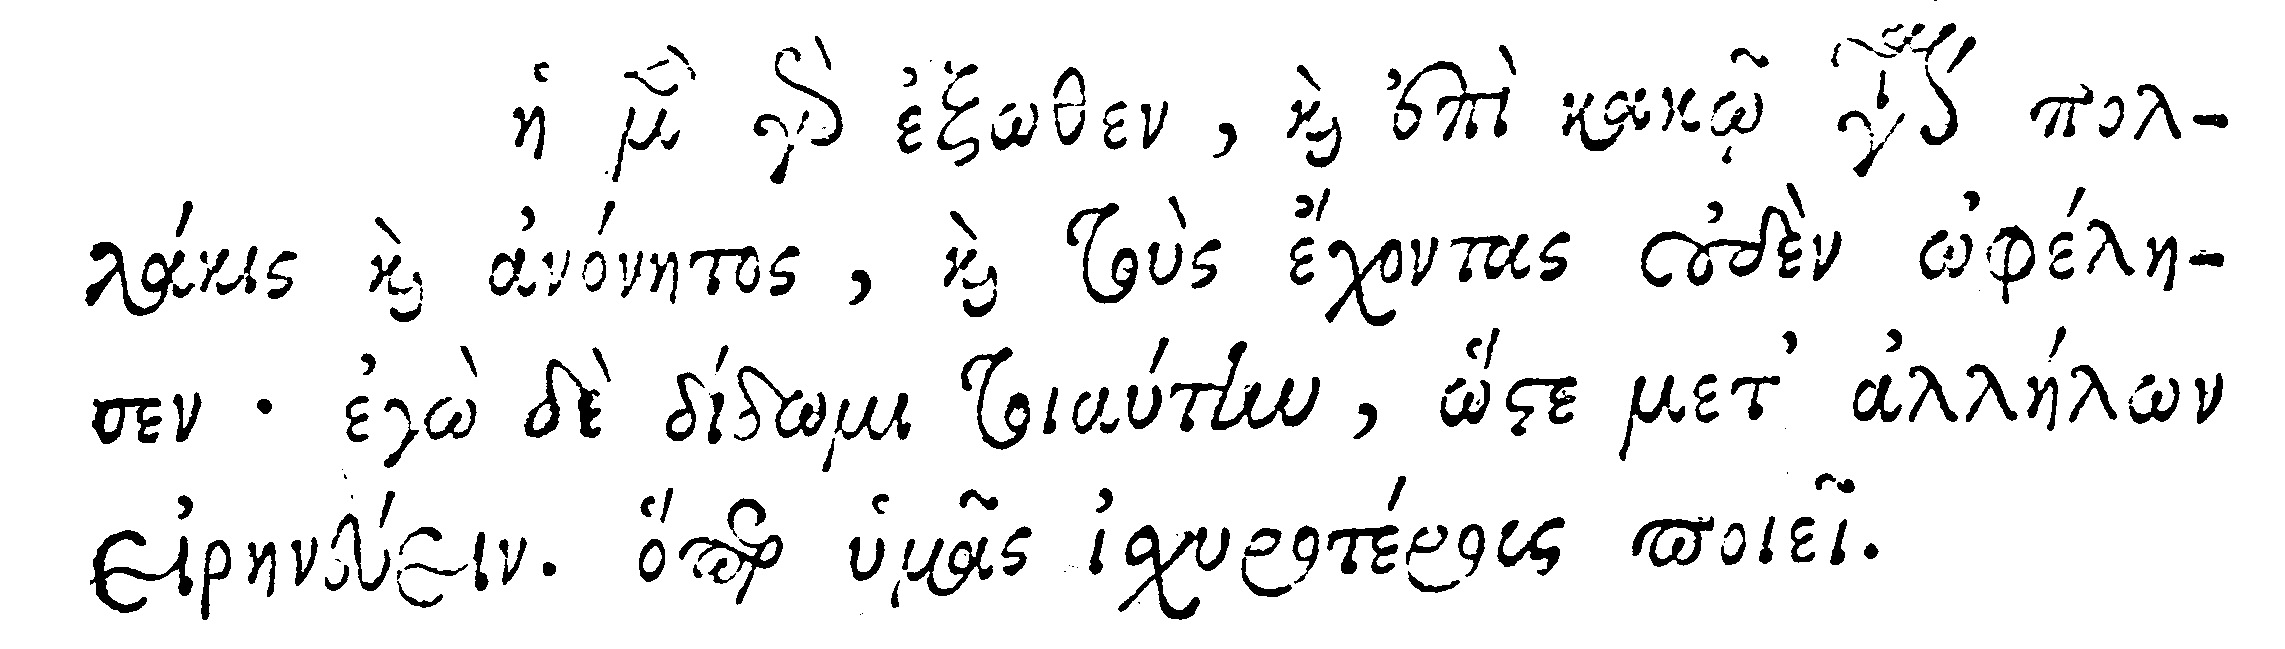 ἡ μὲν γὰρ ἔξωθεν, καὶ ἐπὶ κακῷ γίνεται πολ-
λάκις καὶ ἀνόνητος, καὶ τοὺς ἔχοντας οὐδὲν ὠφέλη-
σεν. ἐγὼ δὲ δίδωμι τοιαύτην, ὥστε μετ᾽ ἀλλήλων
εἰρηνεύειν. ὅπερ ὑμᾶς ἰσχυροτέρους ποιεῖ.